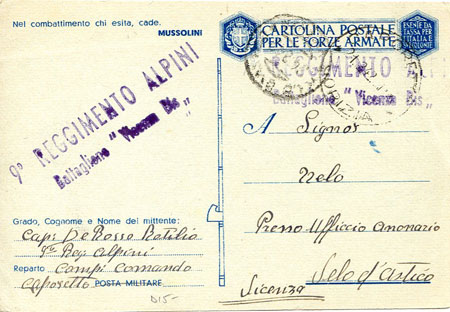 Nel combattimento chi esita, cade.
MUSSOLINI
CARTOLINA POSTALE
PER LE FORZE ARMATE
ESENTE DA
TASSA PER
L'ITALIA E
SUE COLONIE
9° REGGIMENTO ALPINI
Battaglione "Vicenza Bis"
REGGIMENTO ALPINI
Battaglione "Vicenza Bis"
A Signor
Velo
Presso Ufficio Anonario
Velo d'Astico
Vicenza
Grado, Cognome e Nome del mittente:
Cap. De Rosso
Reg Alpini
Reparto Comando
Caporetto POSTA MILITARE
D15-